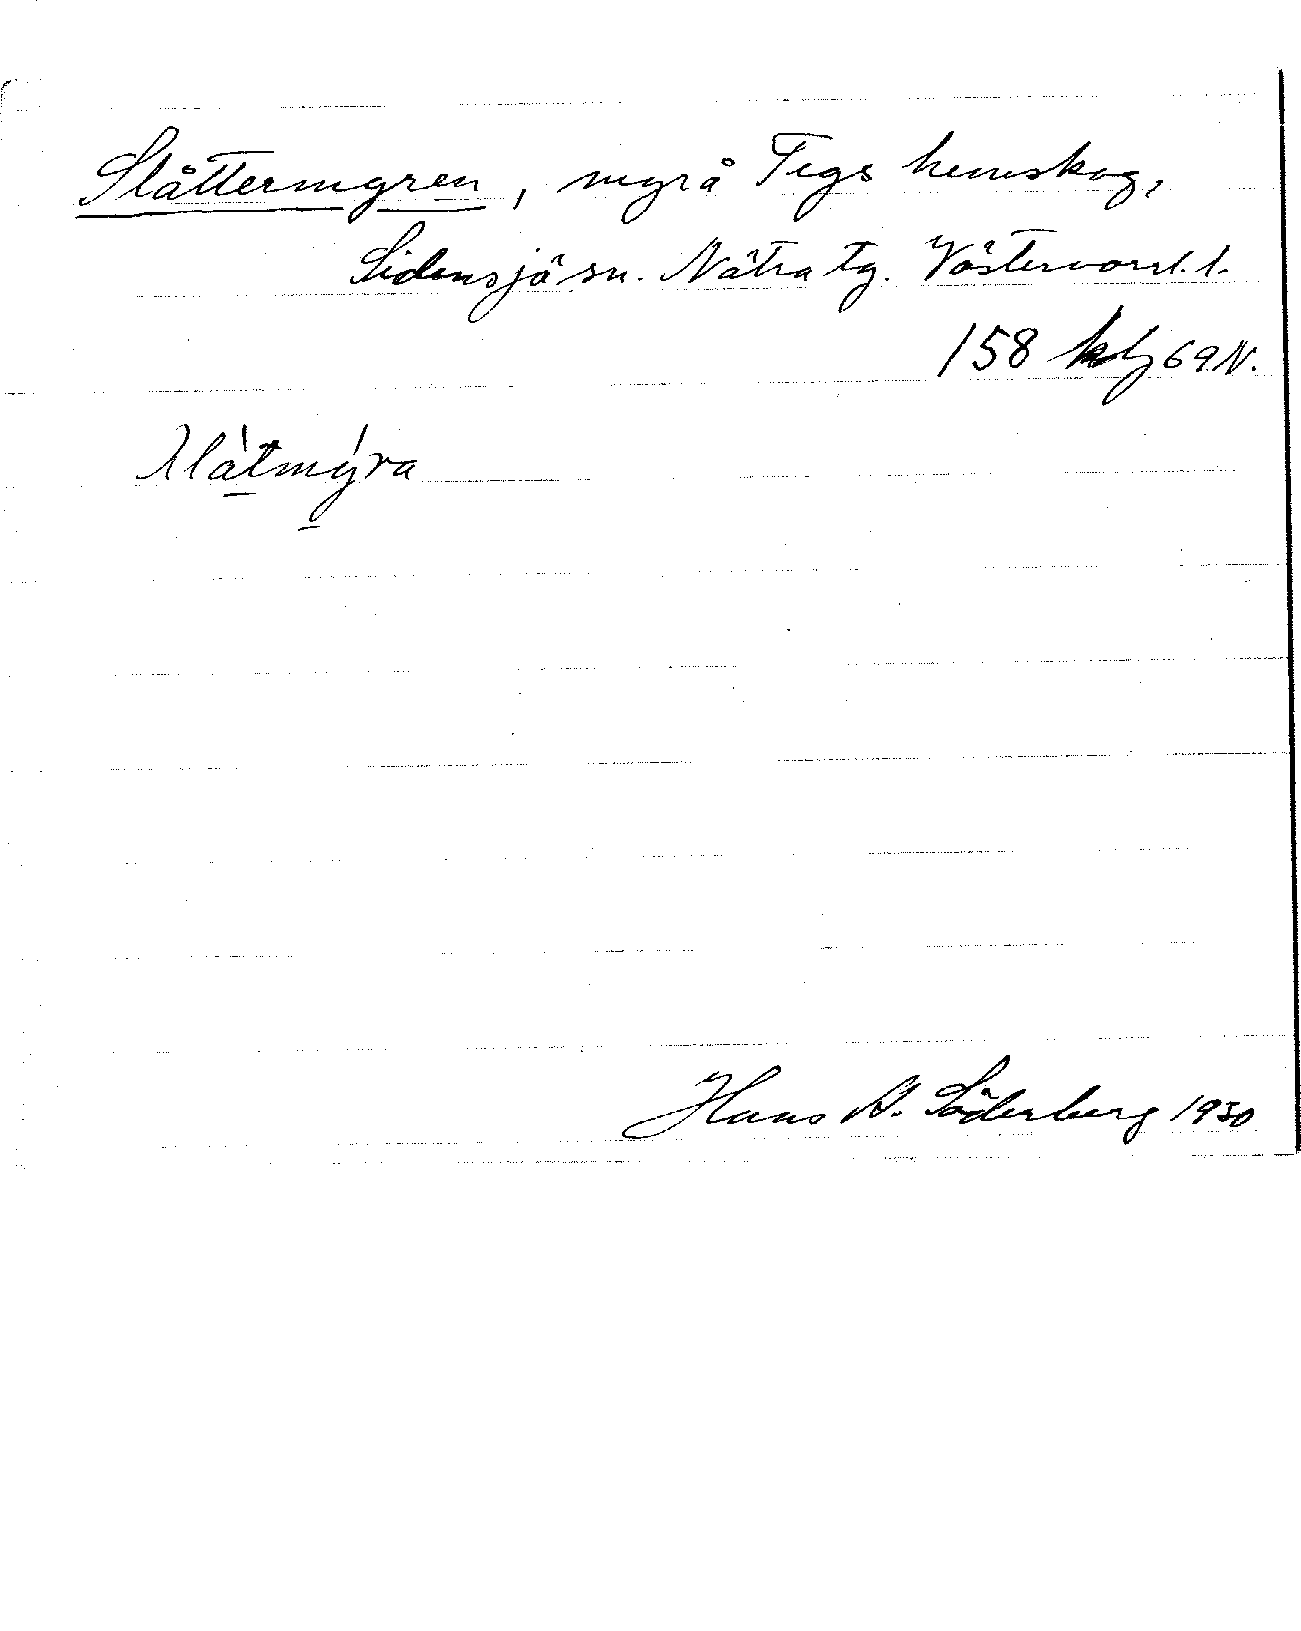 Slåttermyren, myr å Tegs hemskog,
Sidensjö sn. Nätra tg. Västernorrl. l.
158 69 N.
Slåtmýra
Hans A. Söderberg 1930